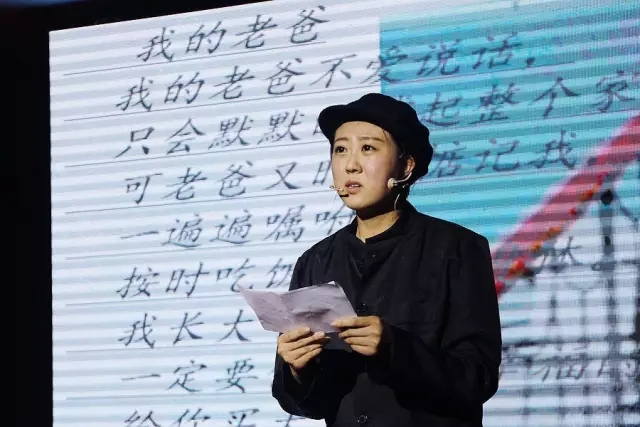 我的老爸
我的老爸不爱说话.
只会默默 起整个家
可老爸又 惦记我
一遍遍嘱咐
按时吃饭
我长大
一定要
给你买